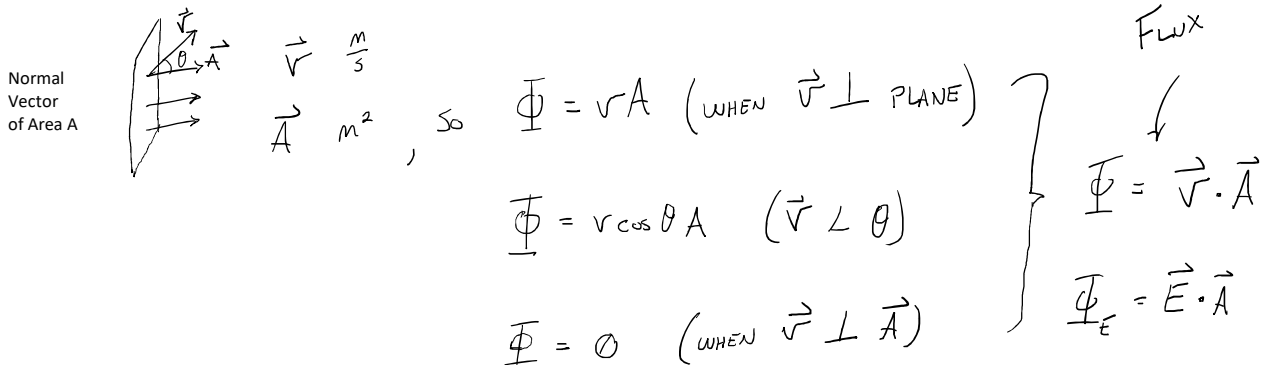 Normal
Vector
of Area A
v⃗
θ A⃗
v⃗ m/s
A⃗ m²
, so
Φ = vA (WHEN v⃗ ⊥ PLANE)
Φ = v cos θ A (v⃗ ∠ θ)
Φ = 0 (WHEN v⃗ ⊥ A⃗)
FLUX
Φ = v⃗ · A⃗
Φ_E = E⃗ · A⃗